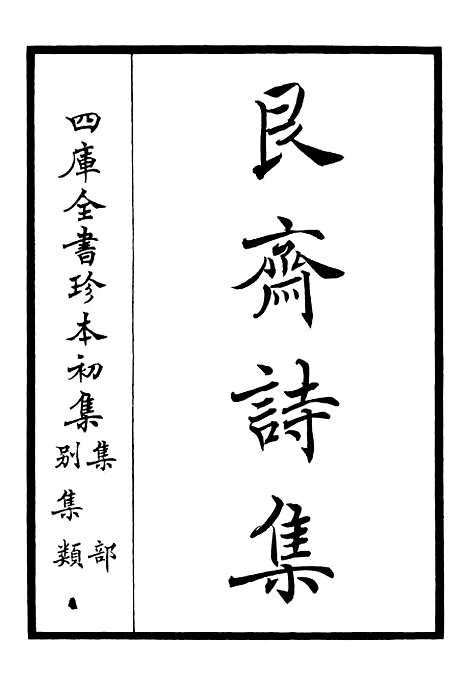 艮齋詩集
四庫全書珍本初集
集部
別集類